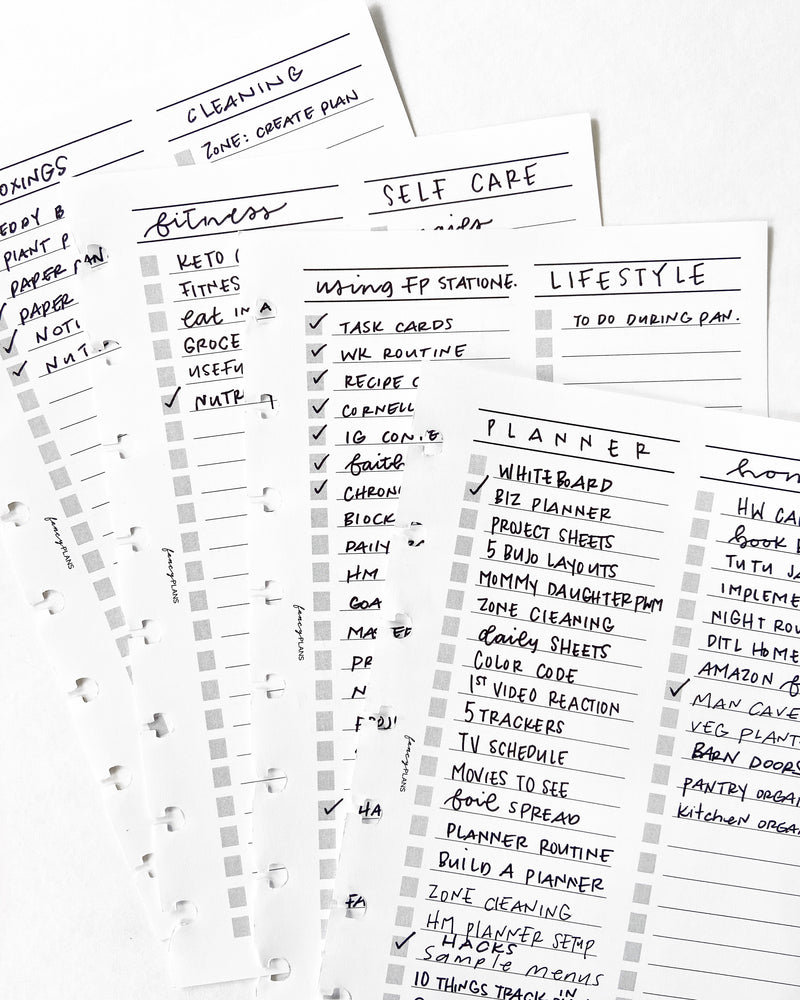 CLEANING
ZONE: CREATE PLAN
PLANT P
PAPER
PAPER
fancyPLANS
fitness
KETO
eat IN A
fancyPLANS
SELF CARE
using FP STATIONE.
TASK CARDS
WK ROUTINE
RECIPE
CORNELL
IG
faith
BLOCK
DAILY
HM
fancyPLANS
LIFESTYLE
TO DO DURING PAN.
PLANNER
WHITEBOARD
BIZ PLANNER
PROJECT SHEETS
5 BUJO LAYOUTS
MOMMY DAUGHTER PWM
ZONE CLEANING
daily SHEETS
COLOR CODE
1ST VIDEO REACTION
5 TRACKERS
TV SCHEDULE
MOVIES TO SEE
foil SPREAD
PLANNER ROUTINE
BUILD A PLANNER
ZONE CLEANING
HM PLANNER SETUP
HACKS
sample menus
10 THINGS TRACK IN
fancyPLANS
HW
book
TUTU
IMPLEME
NIGHT ROU
DITL HOME
AMAZON
MAN CAVE
VEG PLANT
BARN DOORS
PANTRY ORGA
Kitchen ORGA